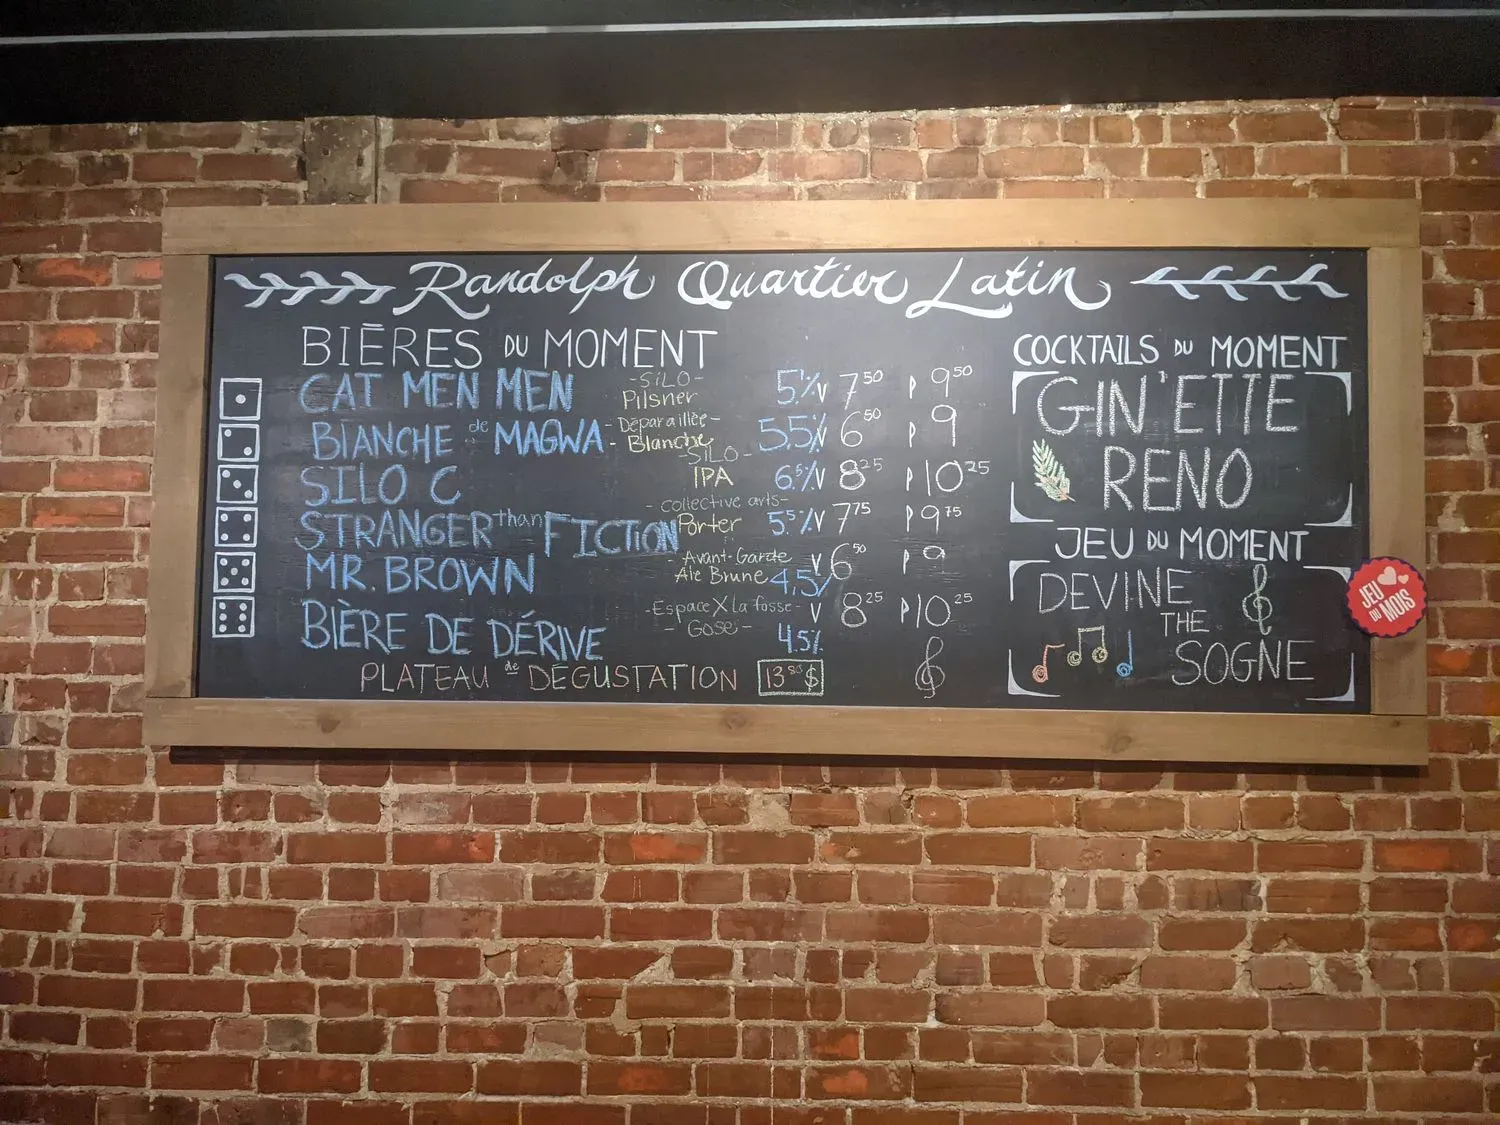 Randolph Quartier Latin
BIÈRES DU MOMENT
CAT MEN MEN -SILO- Pilsner 5% V 7 50 P 9 50
BLANCHE de MAGWA - Dépareillée - Blanche 5,5% V 6 50 P 9
SILO C -SILO- IPA 6.5% V 8 25 P 10 25
STRANGER than FICTION - collective arts - Porter 5 5% V 7 75 P 9 75
MR. BROWN - Avant-Garde Ale Brune 4,5% V 6 50 P 9
BIÈRE DE DÉRIVE -Espace X La fosse- - Gose - 4.5% V 8 25 P 10 25
PLATEAU de DÉGUSTATION 13 $
COCKTAILS DU MOMENT
GIN'ETTE
RENO
JEU DU MOMENT
DEVINE
THE
SOGNE
JEU
DU
MOIS